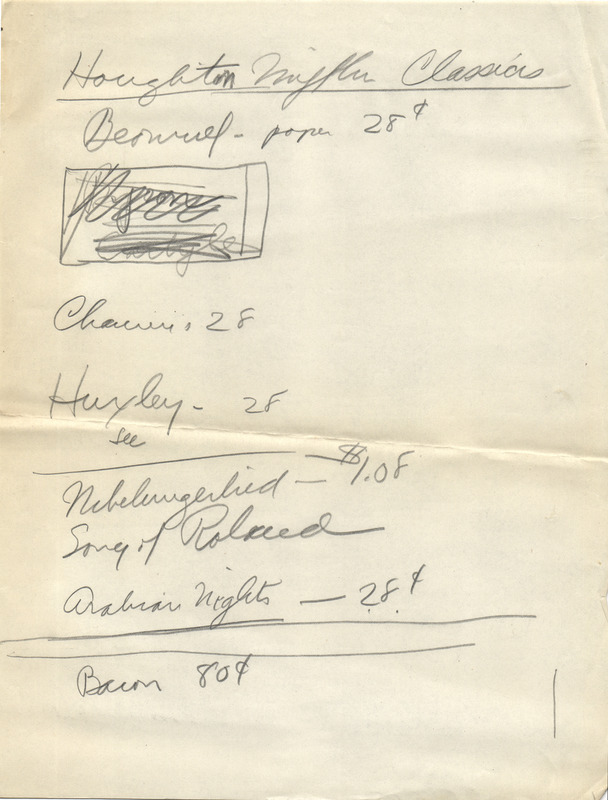 Houghton Mifflin Classics
Beowulf - paper 28¢
Carlyle
Chaucer's 28
Huxley - 28
see
Nibelungenlied — $1.08
Song of Roland
Arabian Nights — 28¢
Bacon 80¢